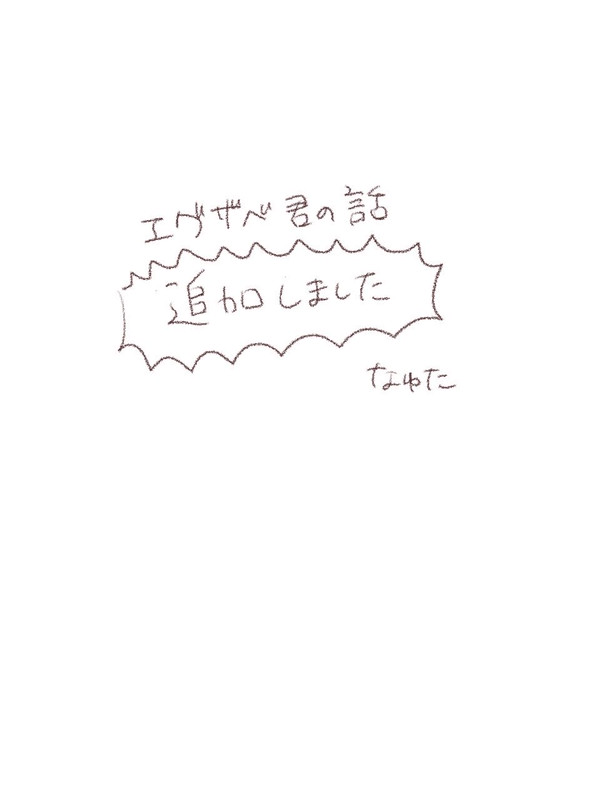 エグザベ君の話
追加しました
なゆた